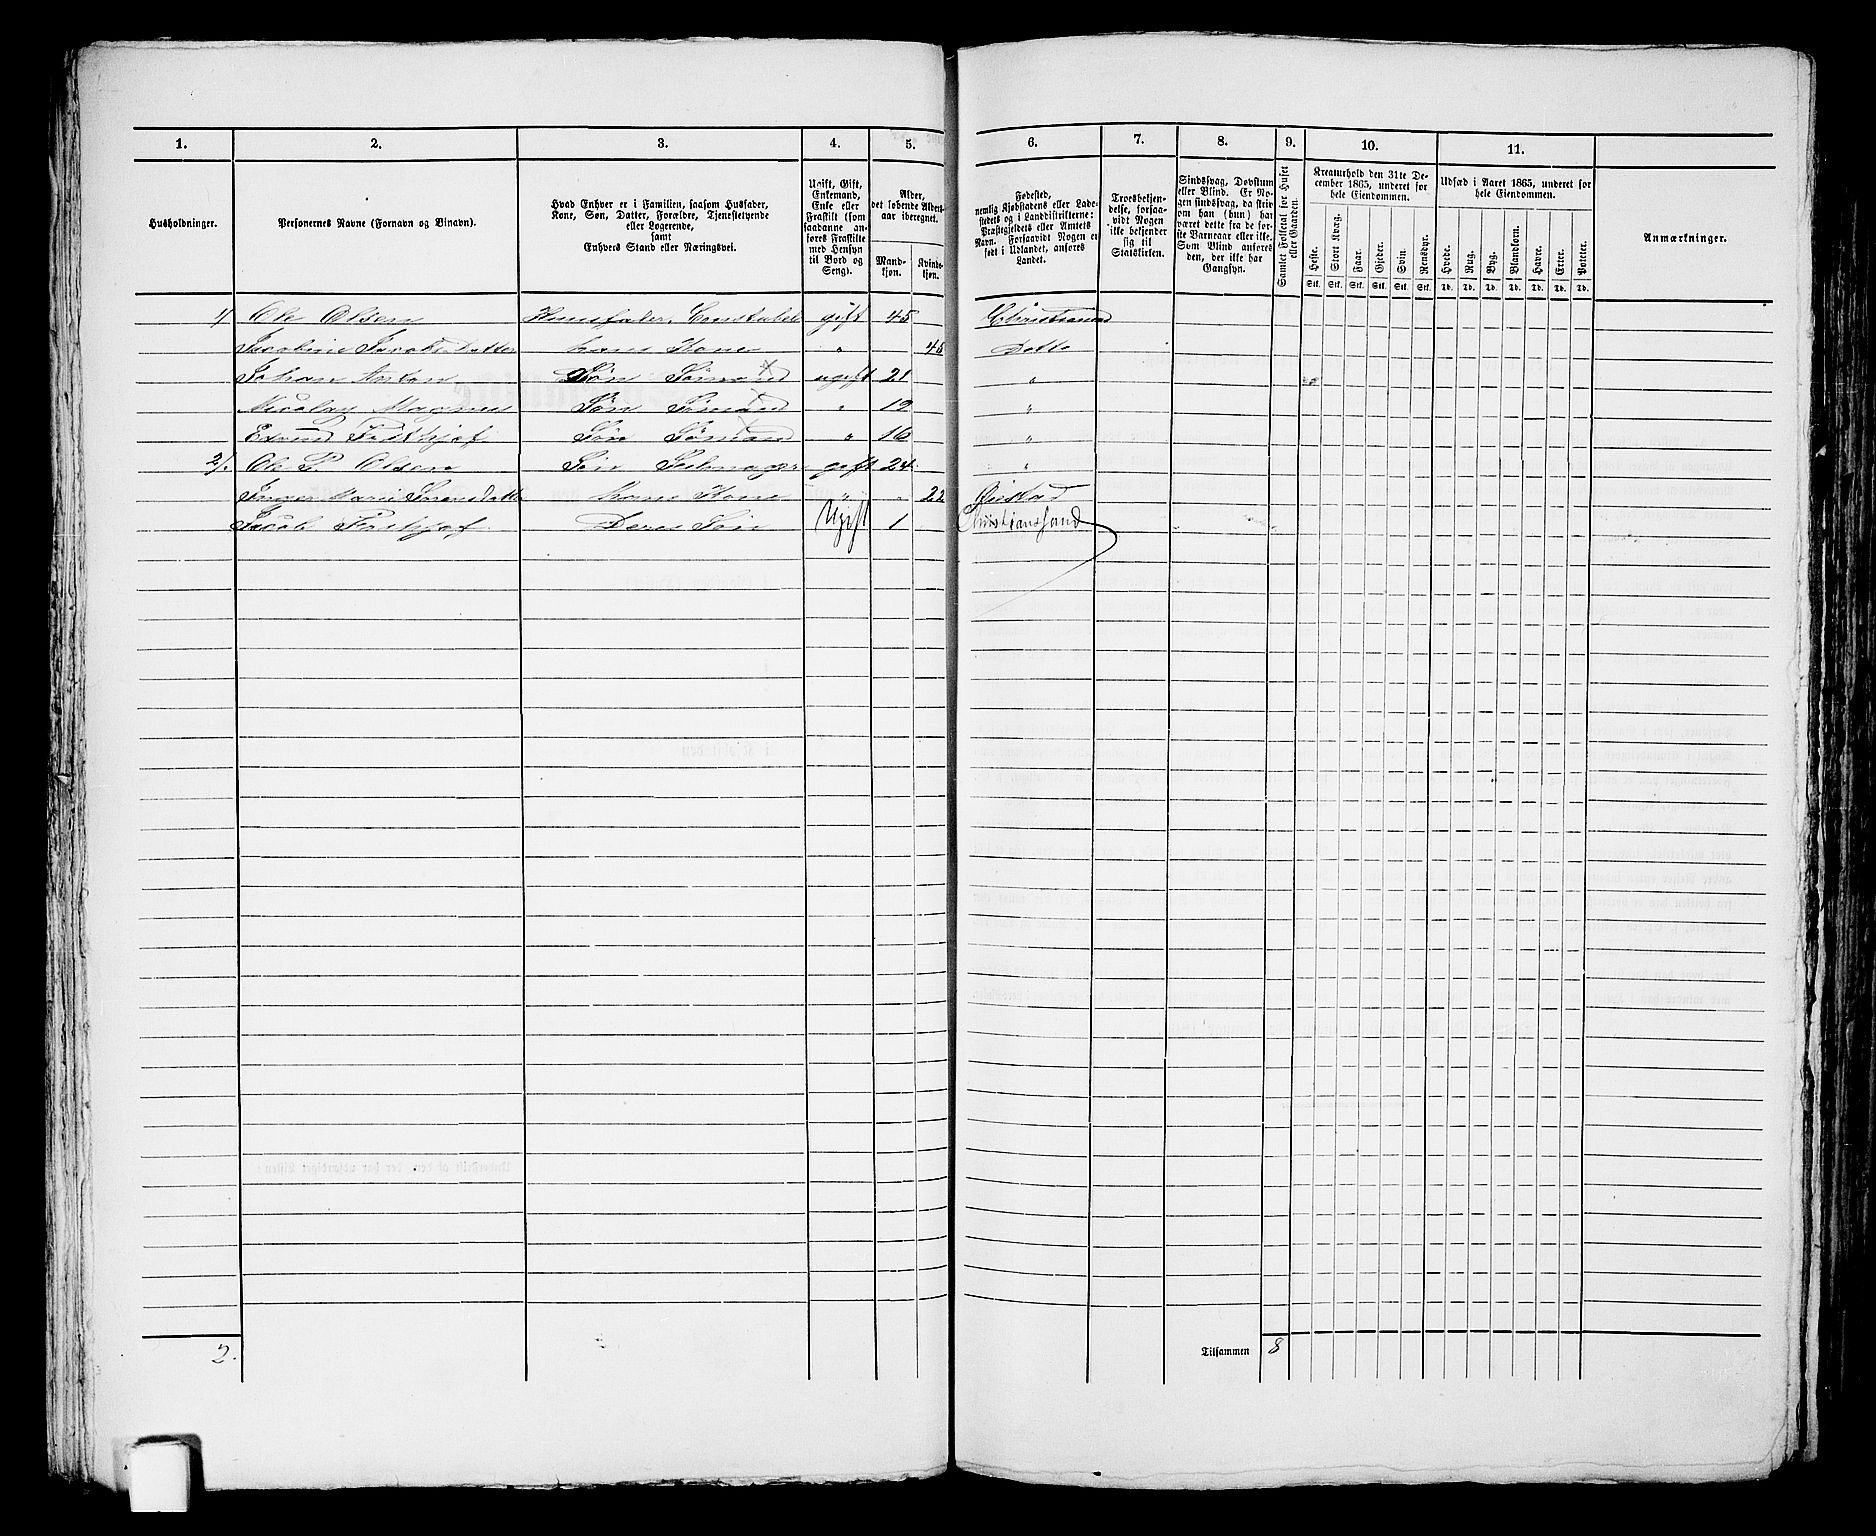 1. 2. 3. 4. 5. 6. 7. 8. 9. 10. 11.
Husholdninger.
Personernes Navne (Fornavn og Binavn).
Hvad Enhver er i Familien, saasom Husfader,
Kone, Søn, Datter, Forældre, Tjenestetyende
eller Logerende,
samt
Enhvers Stand eller Næringsvei.
Ugift, Gift,
Enkemand,
Enke eller
Fraskilt (som
saadanne an-
føres Fraskilte
med Hensyn
til Bord og
Seng).
Alder,
det løbende Alders-
aar iberegnet.
Mand-
kjøn.
Kvinde-
kjøn.
Fødested,
nemlig Kjøbstadens eller Lade-
stedets og i Landdistrikterne:
Præstegjeldets eller Amtets
Navn. Forsaavidt Nogen er
født i Udlandet, anføres
Landet.
Troesbekjen-
delse, forsaa-
vidt Nogen
ikke bekjender
sig til
Statskirken.
Sindssvag, Døvstum
eller Blind. (Er No-
gen sindssvag, da skriv
om han (hun) har
været dette fra de før-
ste Barneaar eller ikke.
Som Blind anføres
den, der ikke har
Gangsyn.
Samlet Folketal for Huset
eller Gaarden.
Kreaturhold den 31te De-
cember 1865, underet for
hele Eiendommen.
Heste. Stort Kvæg. Faar. Gjeder. Svin. Rensdyr.
Stk. Stk. Stk. Stk. Stk. Stk.
Udsæd i Aaret 1865, underet for
hele Eiendommen.
Hvede. Rug. Byg. Blandkorn. Havre. Erter. Poteter.
Td. Td. Td. Td. Td. Td. Td.
Anmærkninger.
1/ Ole Olsen Huusfader, Constabel gift 45 Christiansand
Jacobine Jacobs Datter hans Kone " 45 Ditto
Johan Anton Søn Sømand ugift 21 "
Nicolay Magnus Søn Sømand " 19 "
Edvind Frithjof Søn Sømand " 16 "
2/. Ole P. Olsen Søn Seilmager gift 24 "
Inger Marie Sørensdatter hans Kone " " 22 Øiestad
Jacob Frithjof Deres Søn Ugift 1 Christianssand
2. Tilsammen 8